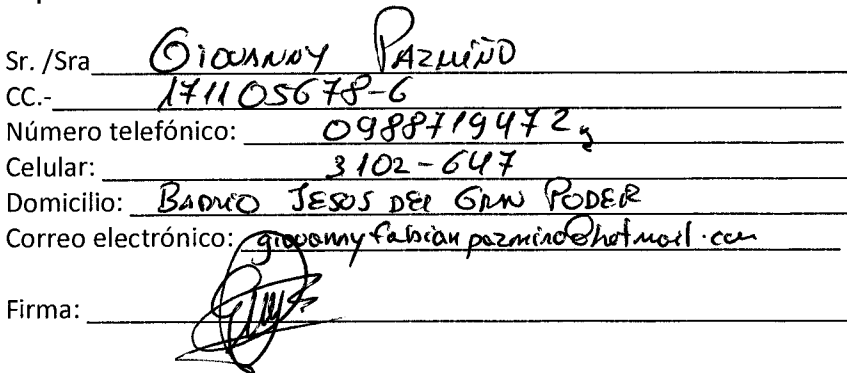 Sr. /Sra GIOVANNY PAZMIÑO
CC.- 171105678-6
Número telefónico: 0988719472
Celular: 3102-647
Domicilio: BARRIO JESUS DEL GRAN PODER
Correo electrónico: giovannyfabianpazmino@hotmail.com
Firma: